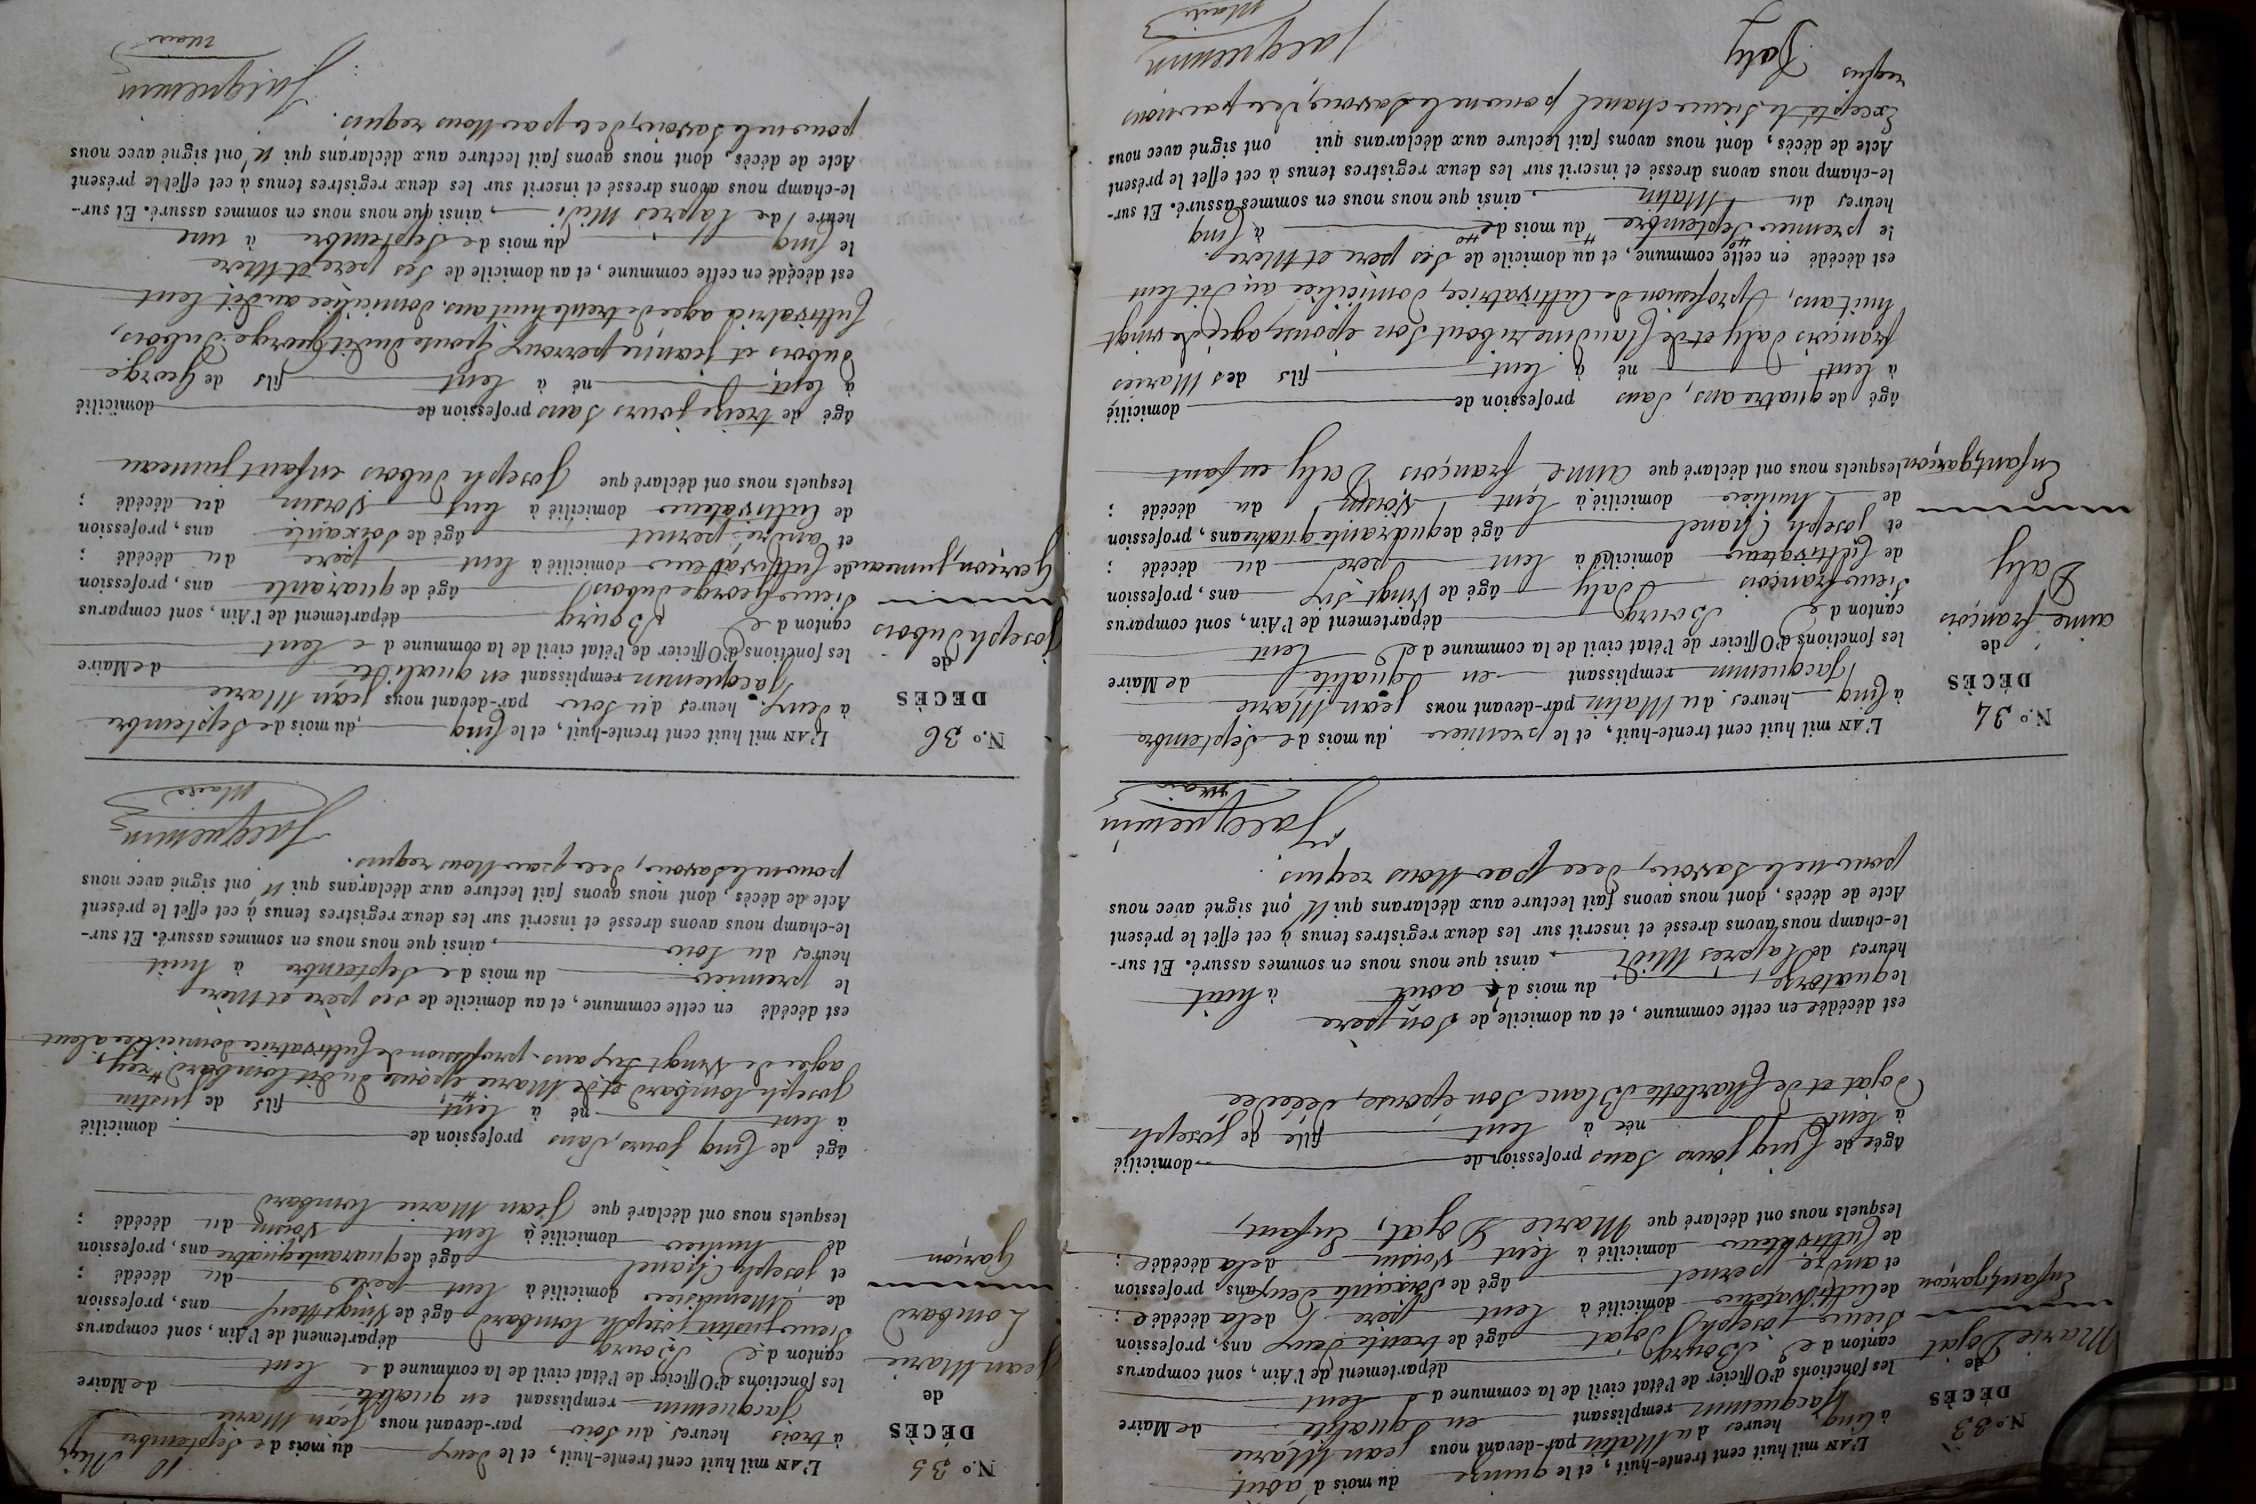 N.o 33
DÉCÈS
de
Marie Dojat
Enfant, garçon
L'AN mil huit cent trent-huit, et le quinze du mois d'aout
à cinq heures du Matin par-devant nous jean Marie
Jacquemin remplissant en qualité de Maire
les fonctions d'Officier de l'état civil de la commune de lent
canton de Bourg département de l'Ain, sont comparus
Sieur joseph Dojat âgé de trente deux ans, profession
de Cultivateur domicilié à lent père de la décédée ;
et andré pernet âgé de Soixante deux ans, profession
de Cultivateur domicilié à lent voisin de la décédée ;
lesquels nous ont déclaré que Marie Dojat, Enfant,
âgée de Cinq jours Sans profession de domicilié
à lent née à lent fille de joseph
Dojat et de Charlotte Blanc Son épouse, décédée
est décédée en cette commune, et au domicile de Son père
le quatorze du mois d'aout à huit
heures de l'apres Midi, ainsi que nous nous en sommes assuré. Et sur-
le-champ nous avons dressé et inscrit sur les deux registres tenus à cet effet le présent
Acte de décès, dont nous avons fait lecture aux déclarans qui n'ont signé avec nous
pour ne le Savoir, de ce par Nous requis.
Jacquemin
maire
N.o 34
DÉCÈS
de
anne françois
Daly
Enfant, garçon
L'AN mil huit cent trent-huit, et le premier du mois de Septembre
à Cinq heures du Matin par-devant nous jean Marie
Jacquemin remplissant en qualité de Maire
les fonctions d'Officier de l'état civil de la commune de lent
canton de Bourg département de l'Ain, sont comparus
Sieur françois Daly âgé de Vingt Six ans, profession
de Cultivateur domicilié à lent père du décédé ;
et joseph Chanel âgé de quarante quatre ans, profession
de huilier domicilié à lent Voisin du décédé ;
lesquels nous ont déclaré que anne françois Daly enfant
âgé de quatre ans, Sans profession de domicilié
à lent né à lent fils des Maries
françois daly et de Claudine rubout Son épouse, agée de vingt
huit ans, profession de Cultivatrice, domiciliée au dit lent
est décédé en celle commune, et au domicile de Ses père et Mere.
le premier Septembre du mois de à Cinq
heures du Matin, ainsi que nous nous en sommes assuré. Et sur-
le-champ nous avons dressé et inscrit sur les deux registres tenus à cet effet le présent
Acte de décès, dont nous avons fait lecture aux déclarans qui ont signé avec nous
Excepté le Sieur chanel pour ne le Savoir, de ce par nous
requis Daly Jacquemin
Maire
N.o 35
DÉCÈS
de
jean Marie
Lombard
Garçon
L'AN mil huit cent trent-huit, et le deux du mois de Septembre
à trois heures du Soir par-devant nous jean Marie
Jacquemin remplissant en qualité de Maire
les fonctions d'Officier de l'état civil de la commune de lent
canton de Bourg département de l'Ain, sont comparus
Sieur justin joseph lombard âgé de Vingt Neuf ans, profession
de Menuisier domicilié à lent père du décédé ;
et joseph Chanel âgé de quarante quatre ans, profession
de huilier domicilié à lent Voisin du décédé ;
lesquels nous ont déclaré que Jean Marie lombard
âgé de Cinq jours, Sans profession de domicilié
à lent né à lent fils de justin
joseph lombard et de Marie épouse du dit lombard
agée de Vingt Six ans, profession de Cultivatrice domiciliée a lent
est décédé en celle commune, et au domicile de ses père et Mère
le premier du mois de Septembre à huit
heures du Soir, ainsi que nous nous en sommes assuré. Et sur-
le-champ nous avons dressé et inscrit sur les deux registres tenus à cet effet le présent
Acte de décès, dont nous avons fait lecture aux déclarans qui n'ont signé avec nous
pour ne le Savoir, de ce par Nous requis.
Jacquemin
Maire
N.o 36
DÉCÈS
de
joseph dubois
Garçon, jumeau
L'AN mil huit cent trent-huit, et le Cinq du mois de Septembre
à deux heures du Soir par-devant nous jean Marie
Jacquemin remplissant en qualité de Maire
les fonctions d'Officier de l'état civil de la commune de lent
canton de Bourg département de l'Ain, sont comparus
Sieur george dubois âgé de quarante ans, profession
de Cultivateur domicilié à lent père du décédé ;
et andré pernet âgé de Soixante ans, profession
de Cultivateur domicilié à lent Voisin du décédé ;
lesquels nous ont déclaré que Joseph dubois enfant jumeau
âgé de treize jours Sans profession de domicilié
à lent né à lent fils de George
dubois et jeanne perroux Epouse dudit george dubois,
Cultivatrice agée de trente huit ans, domiciliée audit lent
est décédé en celle commune, et au domicile de Ses père et Mere
le Cinq du mois de Septembre à une
heure de l'apres Midi, ainsi que nous nous en sommes assuré. Et sur-
le-champ nous avons dressé et inscrit sur les deux registres tenus à cet effet le présent
Acte de décès, dont nous avons fait lecture aux déclarans qui n'ont signé avec nous
pour ne le Savoir, de ce par Nous requis.
Jacquemin
Maire